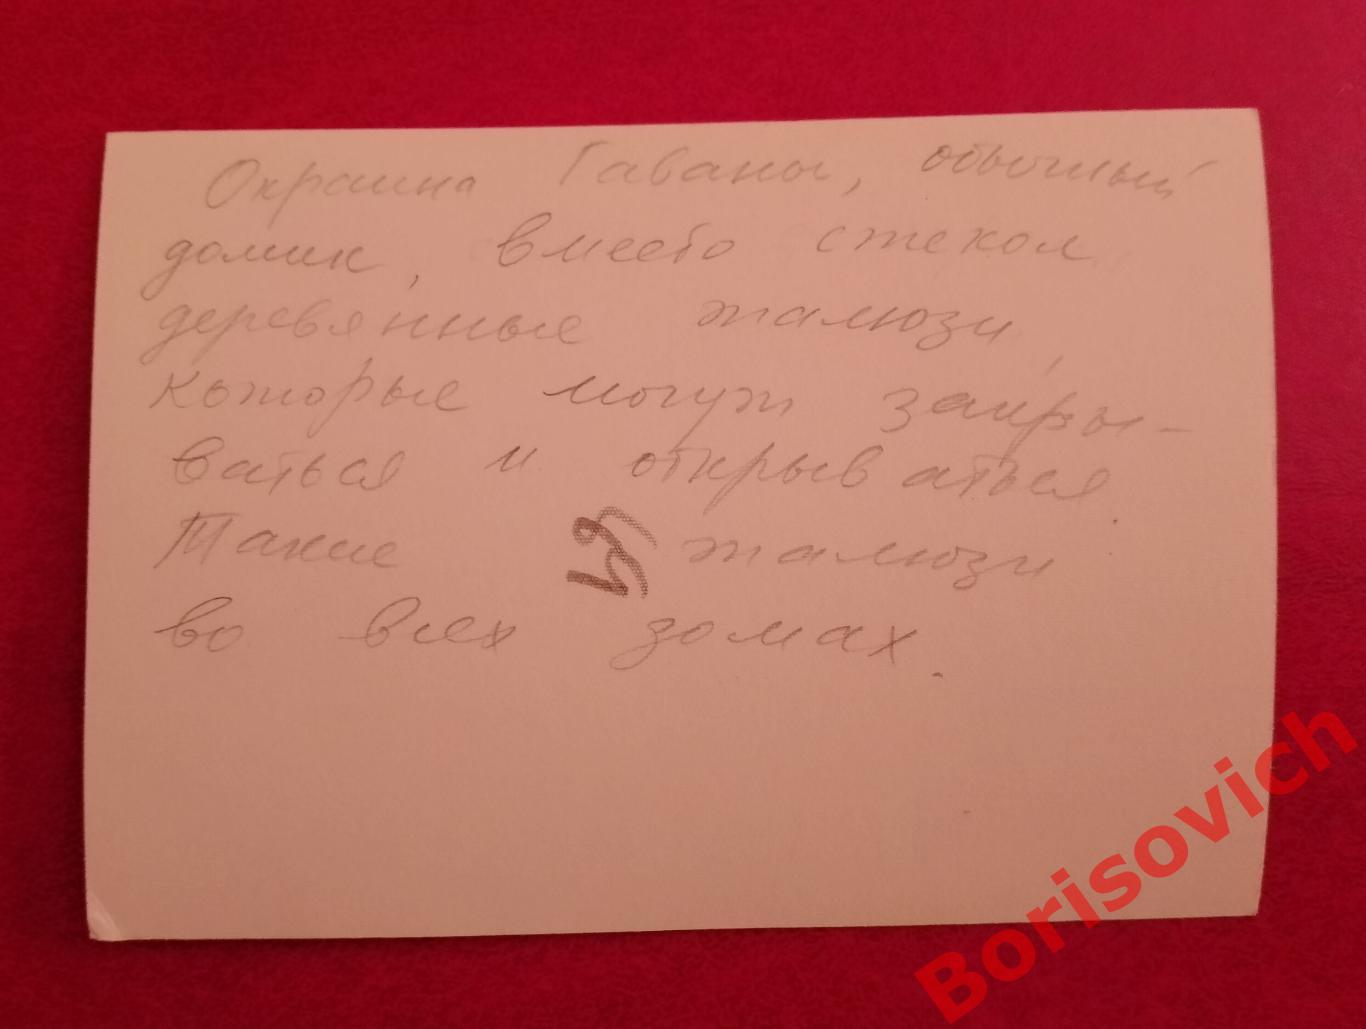 Окраина Гаваны, обычный
домик, вместо стекол
деревянные жалюзи,
которые могут закры-
ваться и открываться.
Такие жалюзи
во всех домах.
Borisovich